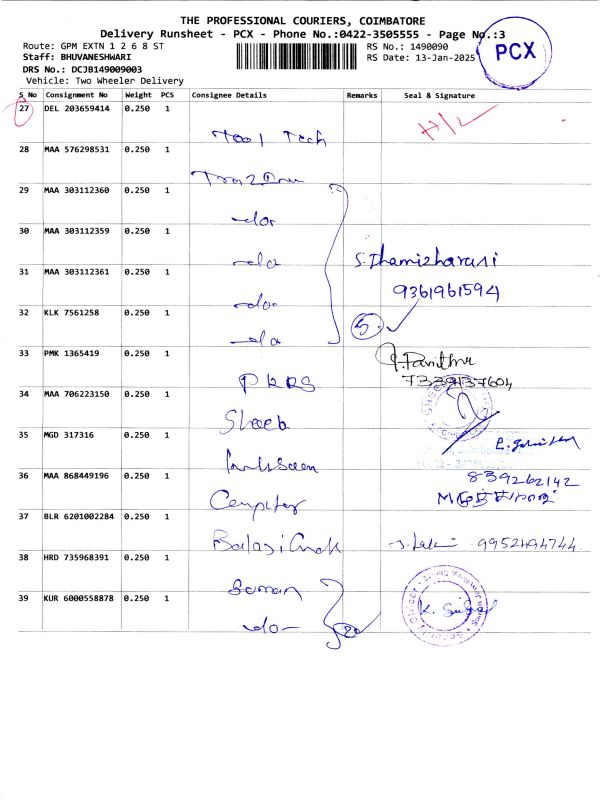 THE PROFESSIONAL COURIERS, COIMBATORE
Delivery Runsheet - PCX - Phone No.:0422-3505555 - Page No.:3
Route: GPM EXTN 1 2 6 8 ST
RS No.: 1490090
PCX
Staff: BHUVANESHWARI
RS Date: 13-Jan-2025
DRS No.: DCJB149009003
Vehicle: Two Wheeler Delivery
S No Consignment No Weight PCS Consignee Details Remarks Seal & Signature
27 DEL 203659414 0.250 1
Tool Tech
28 MAA 576298531 0.250 1
29 MAA 303112360 0.250 1
-do-
30 MAA 303112359 0.250 1
-do-
S. Thamizharasi
31 MAA 303112361 0.250 1
9361961594
-do-
32 KLK 7561258 0.250 1
5
-do-
33 PMK 1365419 0.250 1
P. Pavithra
PKRS
7339137604
34 MAA 706223150 0.250 1
Sheeb
35 MGD 317316 0.250 1
36 MAA 868449196 0.250 1
8-39262142
Computer
37 BLR 6201002284 0.250 1
Balaji
9952494744
38 HRD 735968391 0.250 1
39 KUR 6000558878 0.250 1
-do-